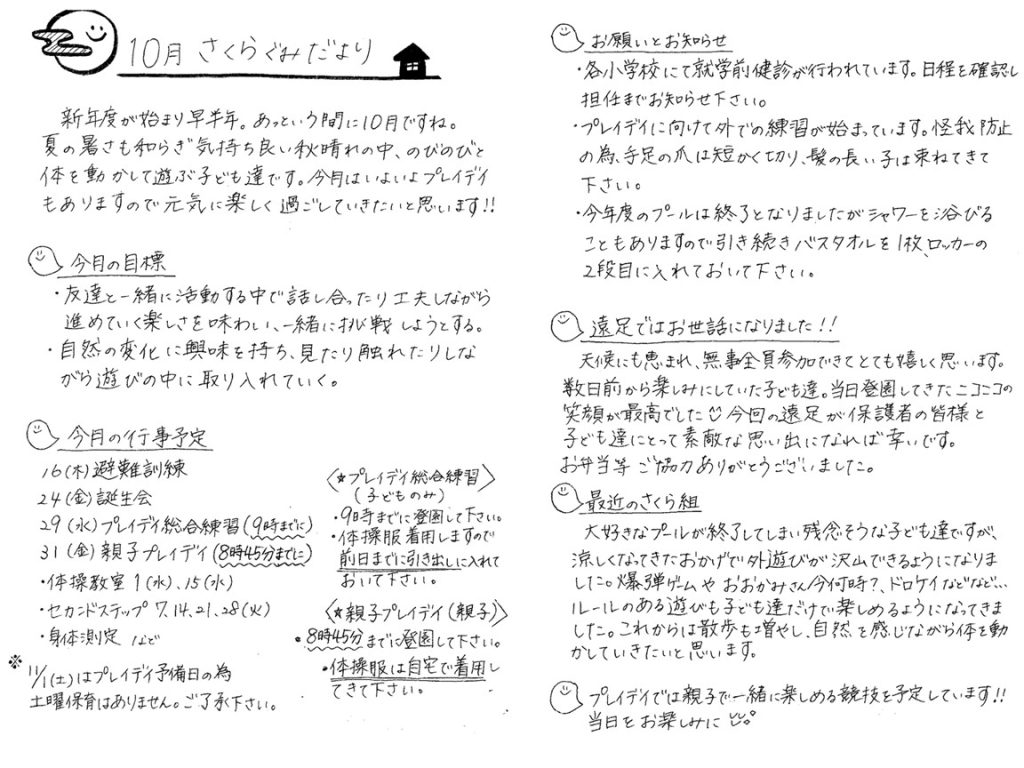 10月 さくらぐみだより
新年度が始まり早半年。あっという間に10月ですね。
夏の暑さも和らぎ気持ち良い秋晴れの中、のびのびと
体を動かして遊ぶ子ども達です。今月はいよいよプレイデイ
もありますので元気に楽しく過ごしていきたいと思います!!
今月の目標
・友達と一緒に活動する中で話し合ったり工夫しながら
進めていく楽しさを味わい、一緒に挑戦しようとする。
・自然の変化に興味を持ち、見たり触れたりしな
がら遊びの中に取り入れていく。
今月の行事予定
16(木)避難訓練
24(金)誕生会
29(水)プレイデイ総合練習(9時までに)
31(金)親子プレイデイ(8時45分までに)
・体操教室 1(水)、15(水)
・セカンドステップ 7、14、21、28(火)
・身体測定 など
※ 11/1(土)はプレイデイ予備日の為
土曜保育はありません。ご了承下さい。
〈★プレイデイ総合練習〉
(子どものみ)
・9時までに登園して下さい。
・体操服着用しますので
前日までに引き出しに入れて
おいて下さい。
〈★親子プレイデイ(親子)〉
・8時45分までに登園して下さい。
・体操服は自宅で着用し
てきて下さい。
お願いとお知らせ
・各小学校にて就学前健診が行われています。日程を確認し
担任までお知らせ下さい。
・プレイデイに向けて外での練習が始まっています。怪我防止
の為、手足の爪は短かく切り、髪の長い子は束ねてきて
下さい。
・今年度のプールは終了となりましたがシャワーを浴びる
こともありますので引き続きバスタオルを1枚、ロッカーの
2段目に入れておいて下さい。
遠足ではお世話になりました!!
天候にも恵まれ、無事全員参加できてとても嬉しく思います。
数日前から楽しみにしていた子ども達。当日登園してきたニコニコの
笑顔が最高でした 今回の遠足が保護者の皆様と
子ども達にとって素敵な思い出になれば幸いです。
お弁当等ご協力ありがとうございました。
最近のさくら組
大好きなプールが終了してしまい残念そうな子ども達ですが、
涼しくなってきたおかげで外遊びが沢山できるようになりま
した。爆弾ゲームやおおかみさん今何時?、ドロケイなどなど…
ルールのある遊びも子ども達だけで楽しめるようになってきま
した。これからは散歩も増やし、自然を感じながら体を動
かしていきたいと思います。
プレイデイでは親子で一緒に楽しめる競技を予定しています!!
当日をお楽しみに